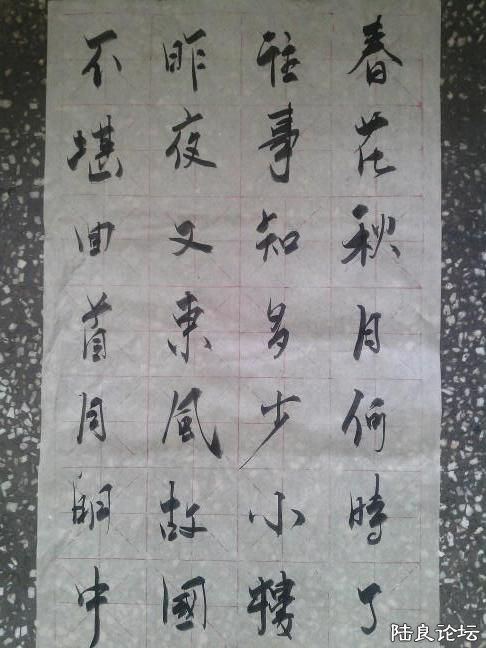 春花秋月何時了
往事知多少小樓
昨夜又東風故國
不堪回首月明中
陆良论坛